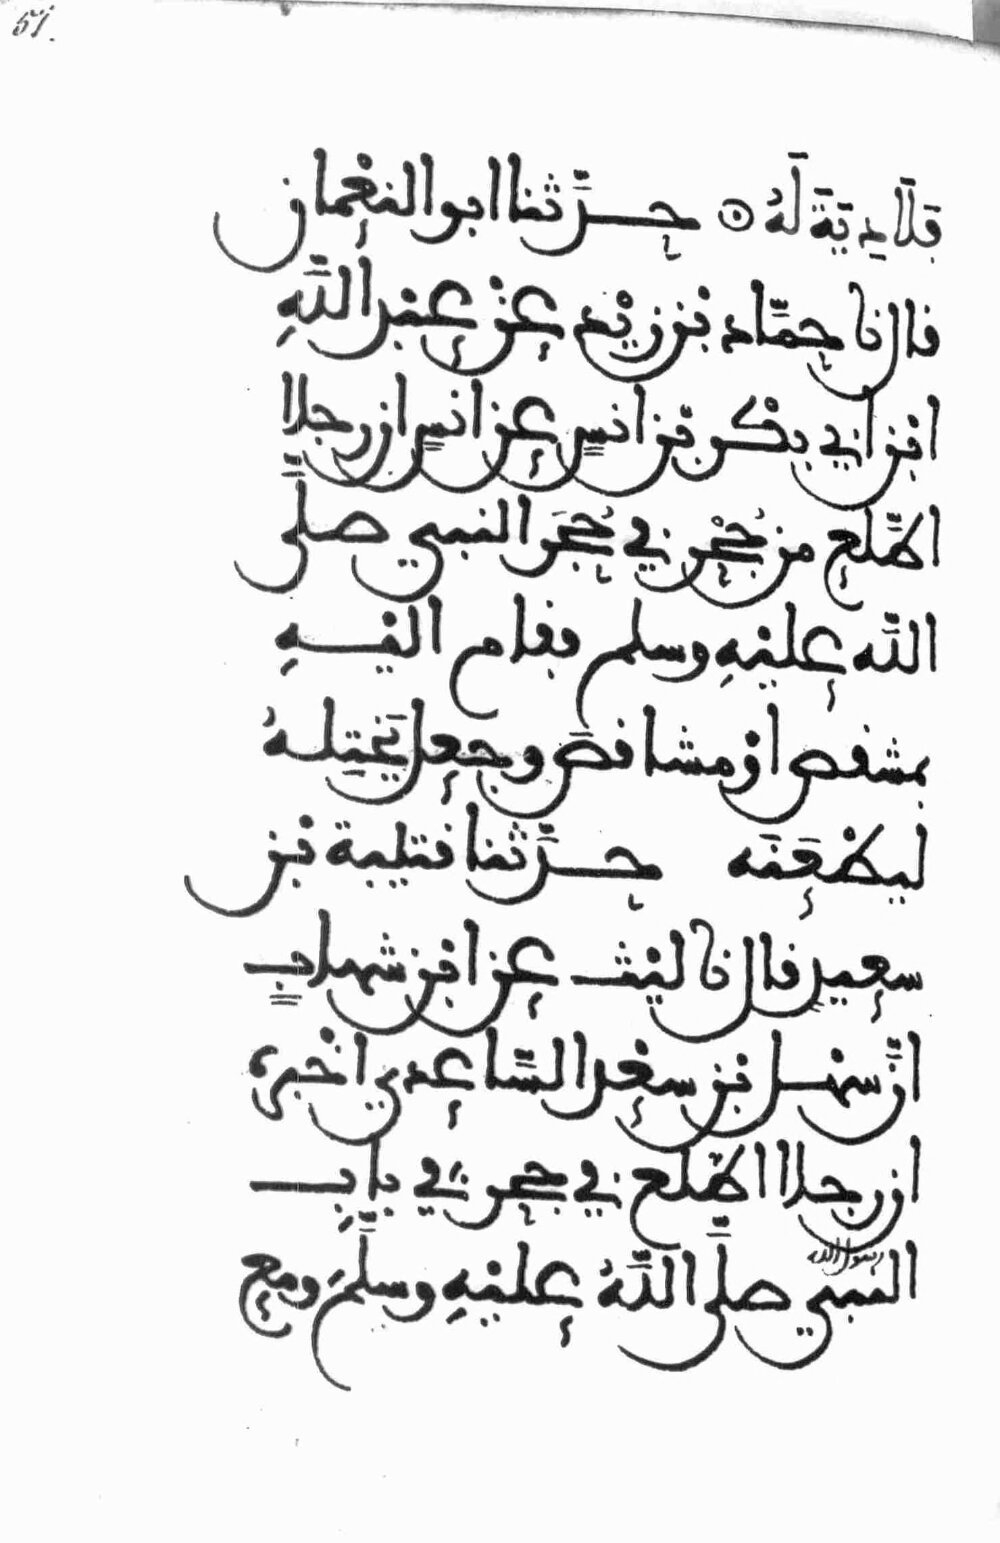 51.
فَلَا دِيَةَ لَهُ ۞ حدّثنا ابو النعْمان
قال نا حمّاد بن زيْد عنْ عبيد اللَّهِ
ابن ابي بكر بن انسٍ عن انسٍ ان رجلا
اطّلع من جُحْرٍ في حُجَر النبي صلَّى
اللَّه عليْهِ وسلم فقام اليْهِ
بمشقص اوْ بمشاقصَ وجعل يَخْتِلهُ
ليطْعَنَه حدّثنا قتيبة بْن
سعيد قال نا ليْث عن ابن شهابٍ
انّ سهْل بن سعْد السَّاعدي اخْبره
ان رجلا اطّلع في جحر في باب
رسول الله
النبي صلَّى اللَّهُ عليْهِ وسلَّمَ ومع